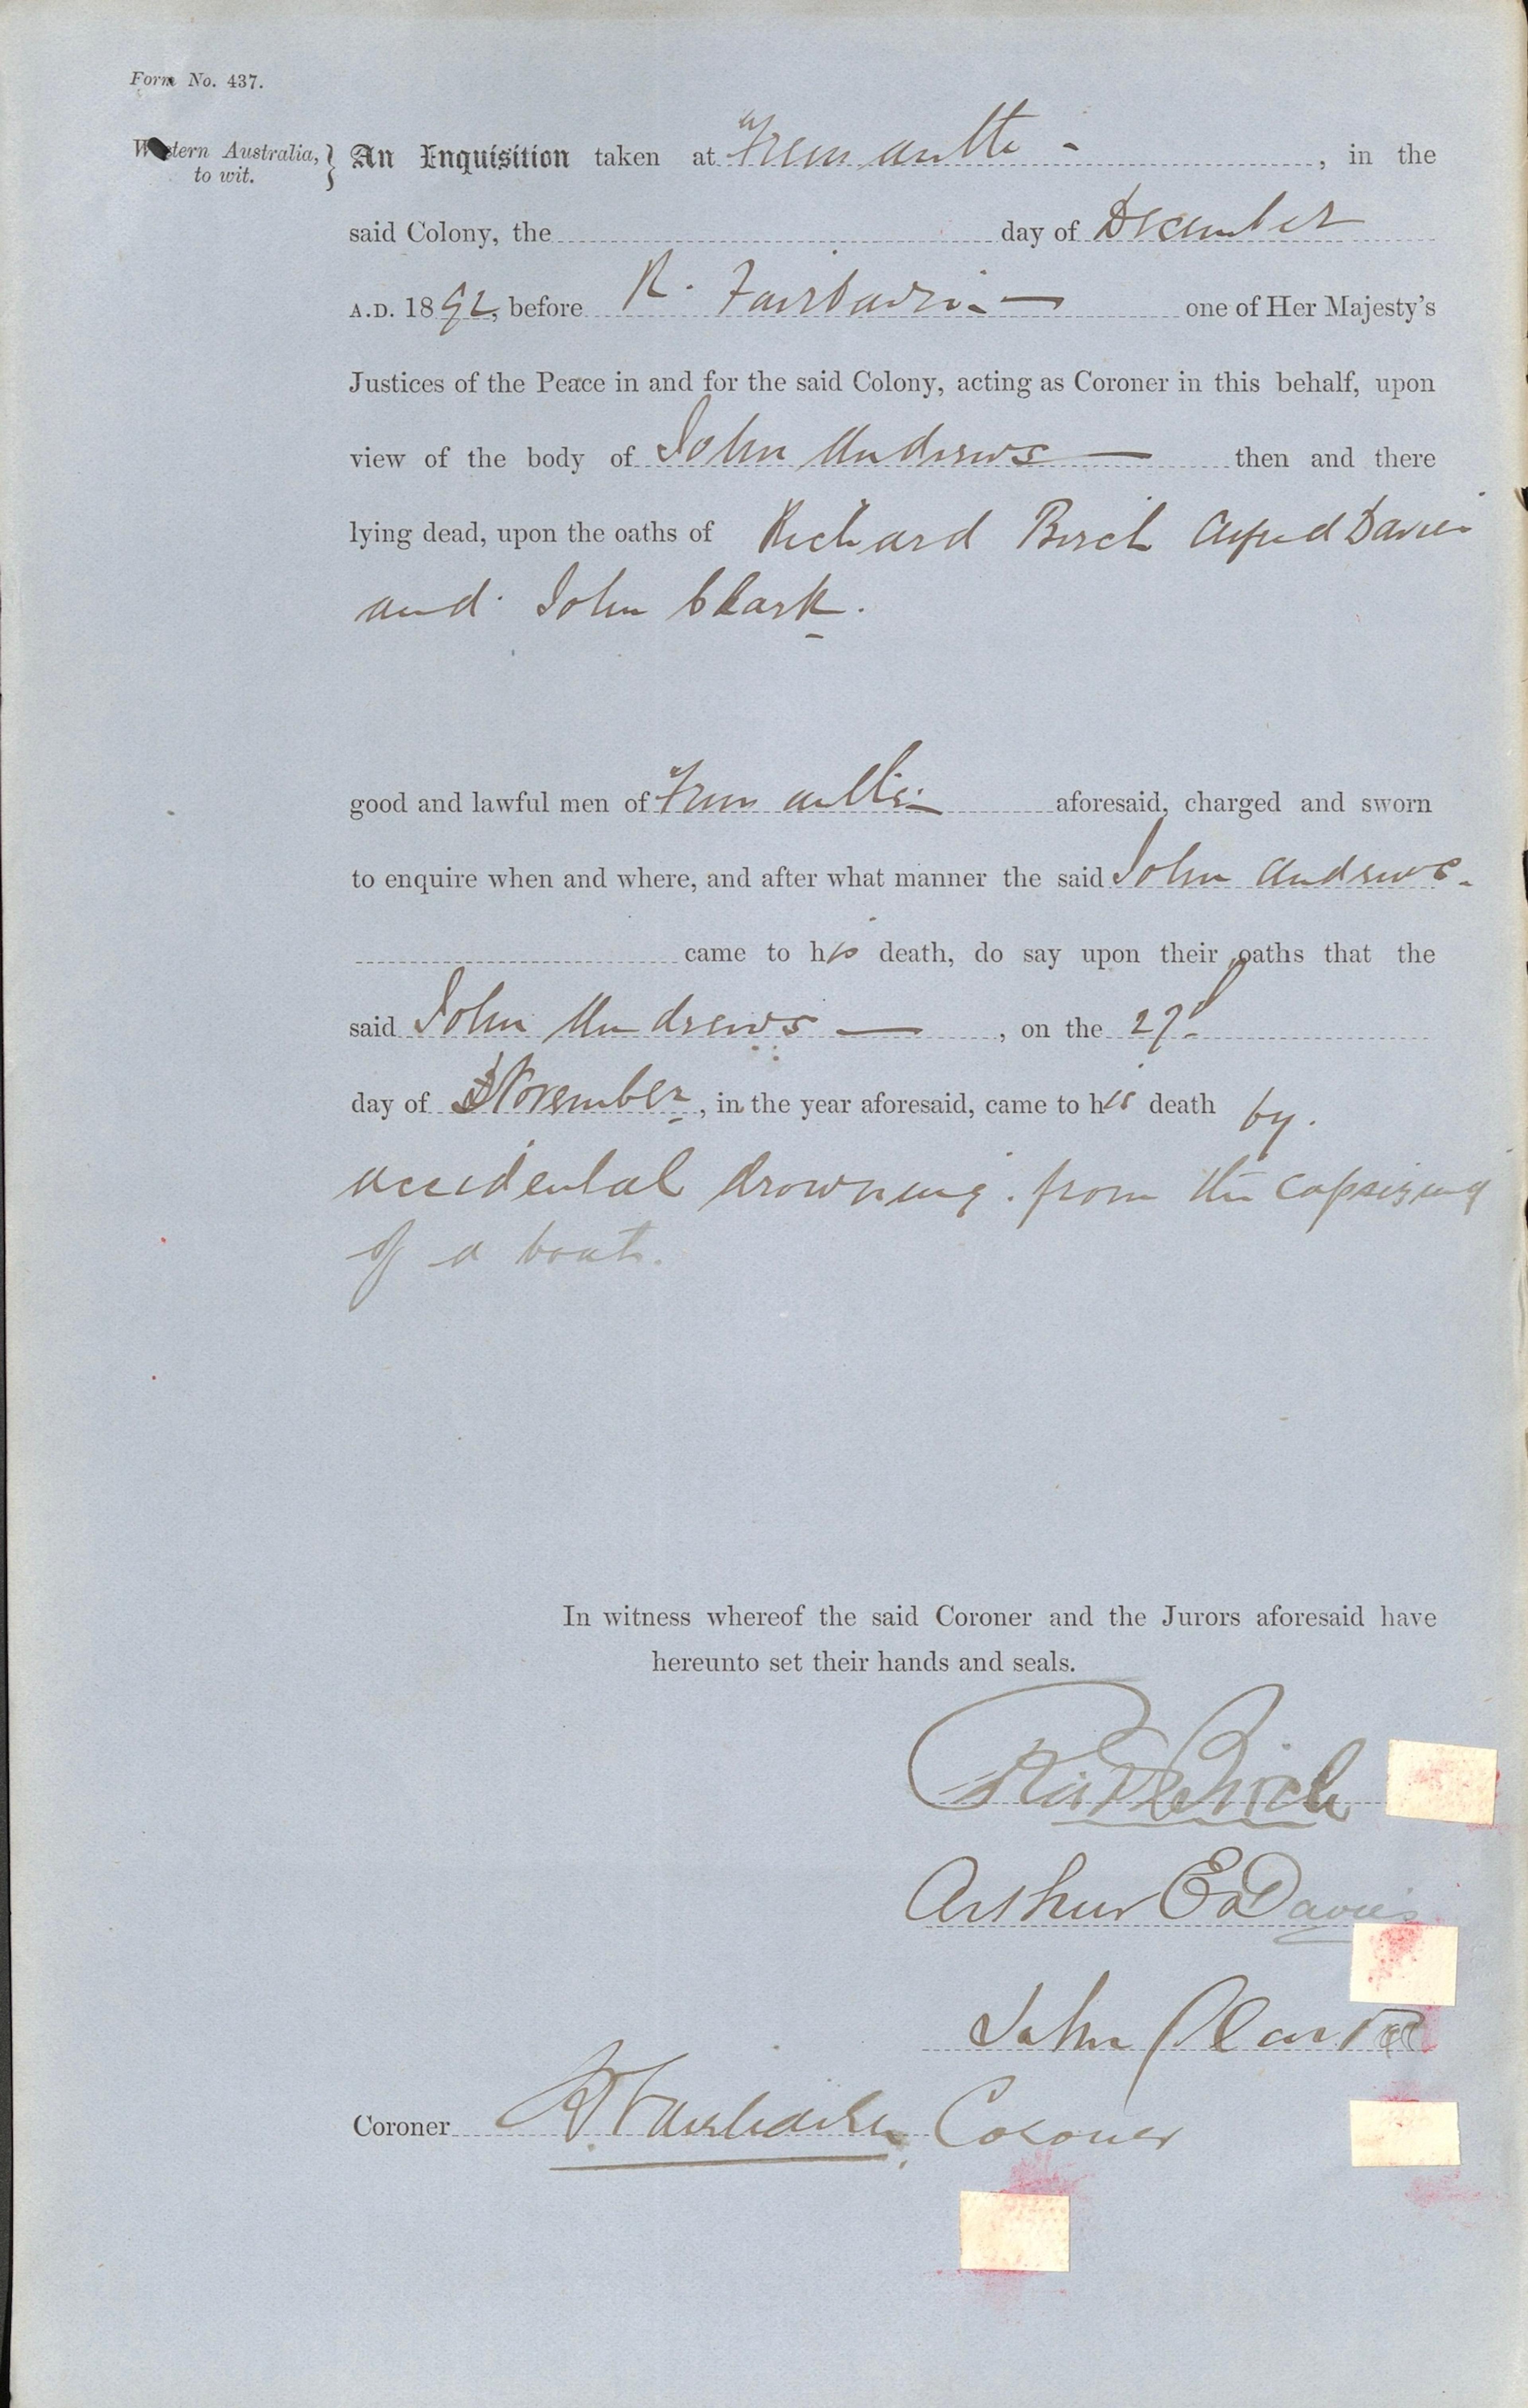 Form No. 437.
Western Australia, to wit. } An Inquisition taken at Fremantle - , in the
said Colony, the day of December
A.D. 1892, before R. Fairbairn — one of Her Majesty's
Justices of the Peace in and for the said Colony, acting as Coroner in this behalf, upon
view of the body of John Andrews — then and there
lying dead, upon the oaths of Richard Birch Alfred Davies
and John Clark.
good and lawful men of Fremantle aforesaid, charged and sworn
to enquire when and where, and after what manner the said John Andrews.
came to his death, do say upon their oaths that the
said John Andrews — , on the 27th
day of November, in the year aforesaid, came to his death by.
accidental drowning. from the capsizing
of a boat.
In witness whereof the said Coroner and the Jurors aforesaid have
hereunto set their hands and seals.
Birch
Arthur E Davies
John Clark
Coroner R Fairbairn Coroner